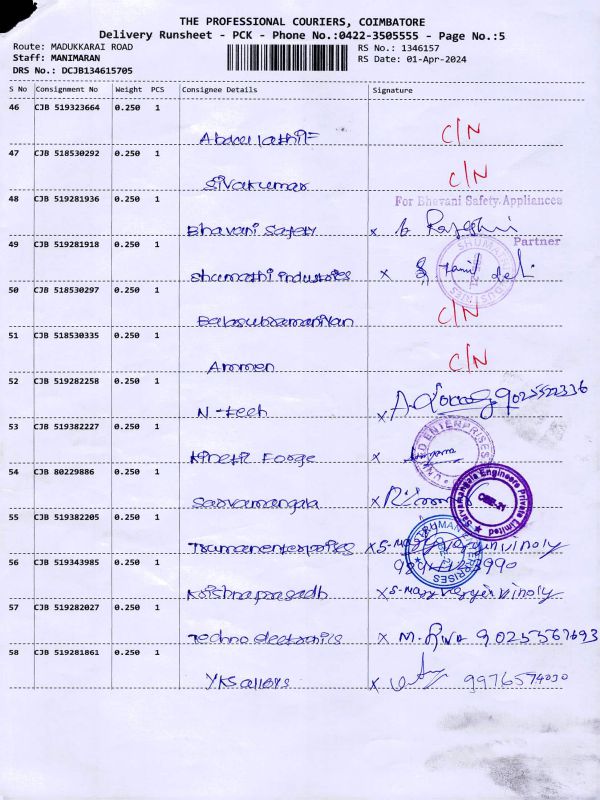 THE PROFESSIONAL COURIERS, COIMBATORE
Delivery Runsheet - PCK - Phone No.:0422-3505555 - Page No.:5
Route: MADUKKARAI ROAD RS No.: 1346157
Staff: MANIMARAN RS Date: 01-Apr-2024
DRS No.: DCJB134615705
S No Consignment No Weight PCS Consignee Details Signature
46 CJB 519323664 0.250 1
C/N
47 CJB 518530292 0.250 1
Sivakumar C/N
48 CJB 519281936 0.250 1 For Bhavani Safety Appliances
Bhavani Safety x
49 CJB 519281918 0.250 1 Partner
Shumathi industries x
50 CJB 518530297 0.250 1
Balasubramaniyan C/N
51 CJB 518530335 0.250 1
Ammen C/N
52 CJB 519282258 0.250 1
N-tech x 9025522336
53 CJB 519382227 0.250 1 ENTERPRISES
Forge x
54 CJB 80229886 0.250 1
Sarvamangala x Sarvamangala Engineers Private Limited
55 CJB 519382205 0.250 1
x
56 CJB 519343985 0.250 1
Krishnaprasadh x
57 CJB 519282027 0.250 1
Techno electronics x M. 9025567693
58 CJB 519281861 0.250 1
YKS alloys x 9976574030